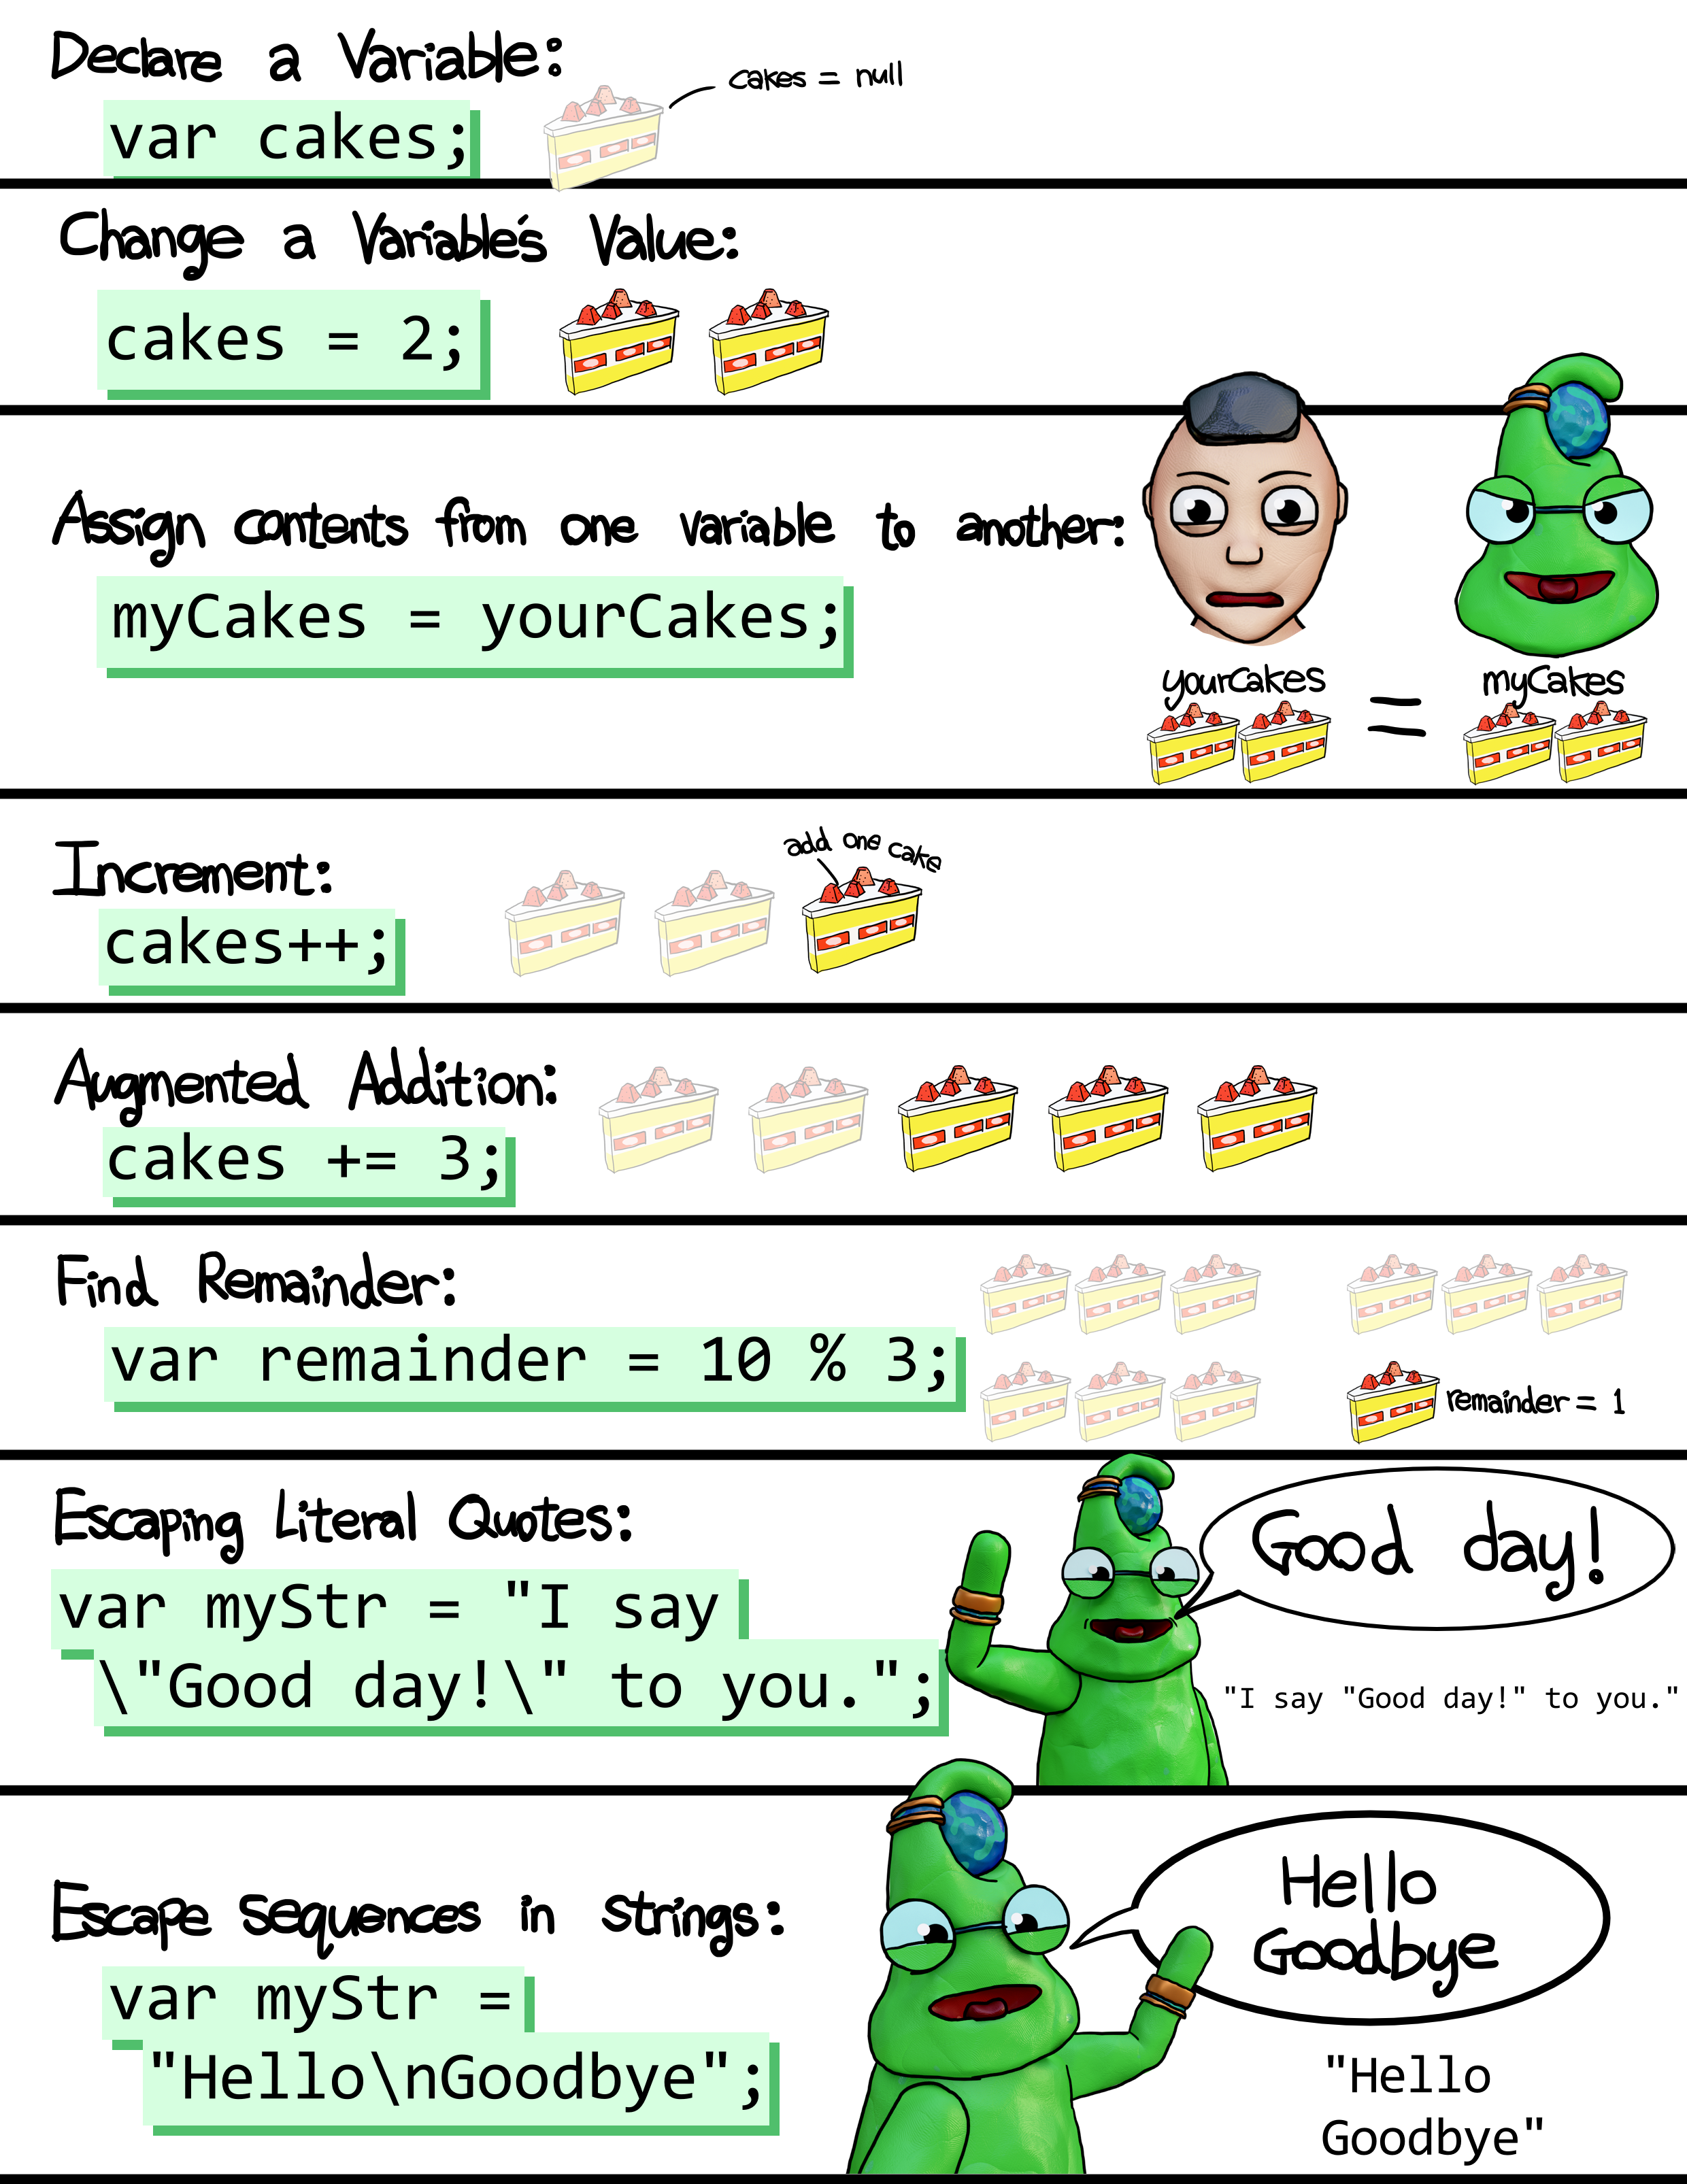 Declare a Variable:
cakes = null
var cakes;
Change a Variable's Value:
cakes = 2;
Assign contents from one variable to another:
myCakes = yourCakes;
yourCakes = myCakes
Increment:
add one cake
cakes++;
Augmented Addition:
cakes += 3;
Find Remainder:
var remainder = 10 % 3;
remainder = 1
Escaping Literal Quotes:
Good day!
var myStr = "I say
\"Good day!\" to you.";
"I say "Good day!" to you."
Escape sequences in strings:
Hello
Goodbye
var myStr =
"Hello\nGoodbye";
"Hello
Goodbye"